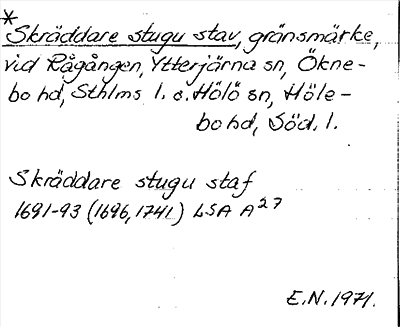 *
Skräddare stugu stav, gränsmärke,
vid Rågången, Ytterjärna sn, Ökne-
bo hd, Sthlms l. o. Hölö sn, Höle-
bo hd, Söd. l.
Skräddare stugu staf
1691-93 (1696, 1741) LSA A27
E.N. 1971.